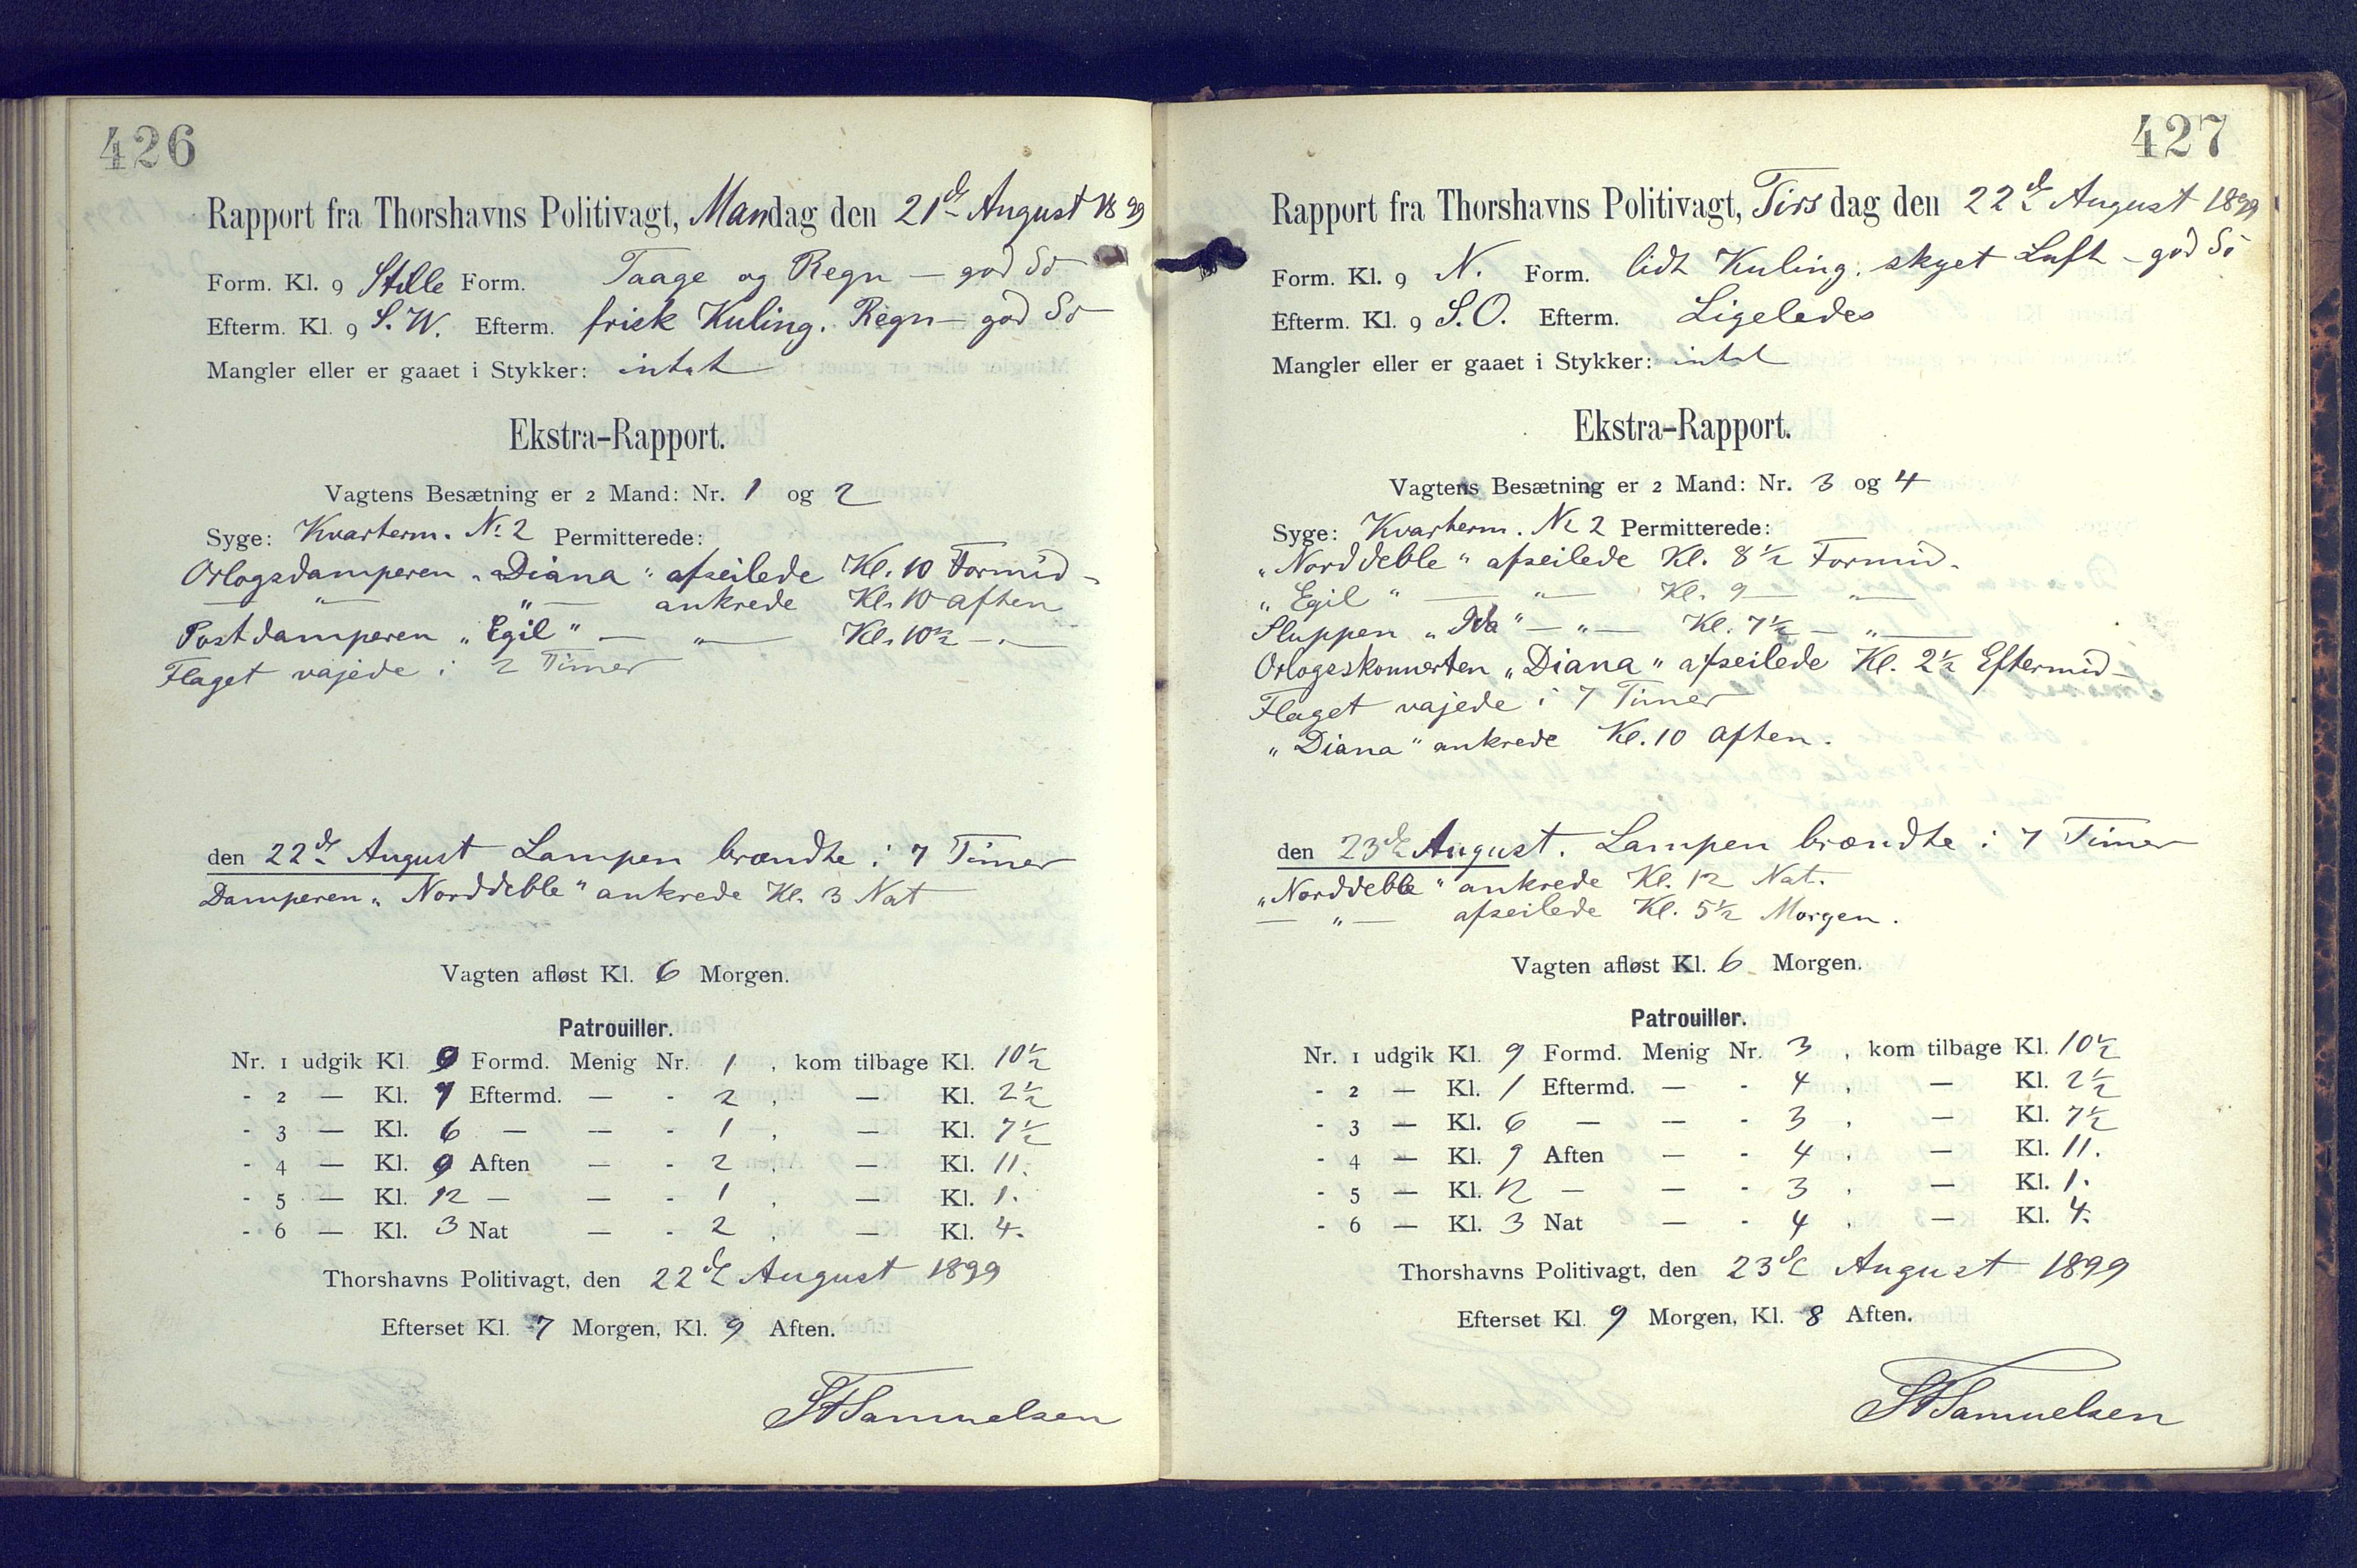 426
Rapport fra Thorshavns Politivagt, Mandag den 21de August 1899
Form. Kl. 9 Stille Form. Taage og Regn — god Sø
Efterm. Kl. 9 S.W. Efterm. frisk Kuling. Regn — god Sø
Mangler eller er gaaet i Stykker: intet
Ekstra-Rapport.
Vagtens Besætning er 2 Mand: Nr. 1 og 2
Syge: Kvarterm. No 2 Permitterede:
Orlogsdamperen „Diana“ afseilede Kl. 10 Formid-
— „ — „ — ankrede Kl. 10 Aften
Postdamperen „Egil“ — „ — Kl. 10½ — „ —
Flaget vajede i 2 Timer
den 22de August Lampen brændte i 7 Timer
Damperen „Norddeble“ ankrede Kl. 3 Nat
Vagten afløst Kl. 6 Morgen.
Patrouiller.
Nr. 1 udgik Kl. 9 Formd. Menig Nr. 1, kom tilbage Kl. 10½
- 2 — Kl. 1 Eftermd. — - 2, — Kl. 2½
- 3 — Kl. 6 — — - 1, — Kl. 7½
- 4 — Kl. 9 Aften — - 2, — Kl. 11.
- 5 — Kl. 12 — — - 1, — Kl. 1.
- 6 — Kl. 3 Nat — - 2, — Kl. 4.
Thorshavns Politivagt, den 22de August 1899
Efterset Kl. 7 Morgen, Kl. 9 Aften.
Samuelsen
427
Rapport fra Thorshavns Politivagt, Tirsdag den 22de August 1899
Form. Kl. 9 N. Form. lidt Kuling. skyet Luft — god Sø
Efterm. Kl. 9 S.O. Efterm. Ligeledes
Mangler eller er gaaet i Stykker: intet
Ekstra-Rapport.
Vagtens Besætning er 2 Mand: Nr. 3 og 4
Syge: Kvarterm. No 2 Permitterede:
„Norddeble“ afseilede Kl. 8½ Formid-
„Egil“ — „ — Kl. 9 — „ —
Sluppen „Ida“ — „ — Kl. 7½ — „ —
Orlogsskonnerten „Diana“ afseilede Kl. 2½ Eftermid-
Flaget vajede i 7 Timer
„Diana“ ankrede Kl. 10 Aften.
den 23de August. Lampen brændte i 7 Timer
„Norddeble“ ankrede Kl. 12 Nat.
— „ — afseilede Kl. 5½ Morgen.
Vagten afløst Kl. 6 Morgen.
Patrouiller.
Nr. 1 udgik Kl. 9 Formd. Menig Nr. 3, kom tilbage Kl. 10½
- 2 — Kl. 1 Eftermd. — - 4, — Kl. 2½
- 3 — Kl. 6 — — - 3, — Kl. 7½
- 4 — Kl. 9 Aften — - 4, — Kl. 11.
- 5 — Kl. 12 — — - 3, — Kl. 1.
- 6 — Kl. 3 Nat — - 4, — Kl. 4.
Thorshavns Politivagt, den 23de August 1899
Efterset Kl. 9 Morgen, Kl. 8 Aften.
Samuelsen